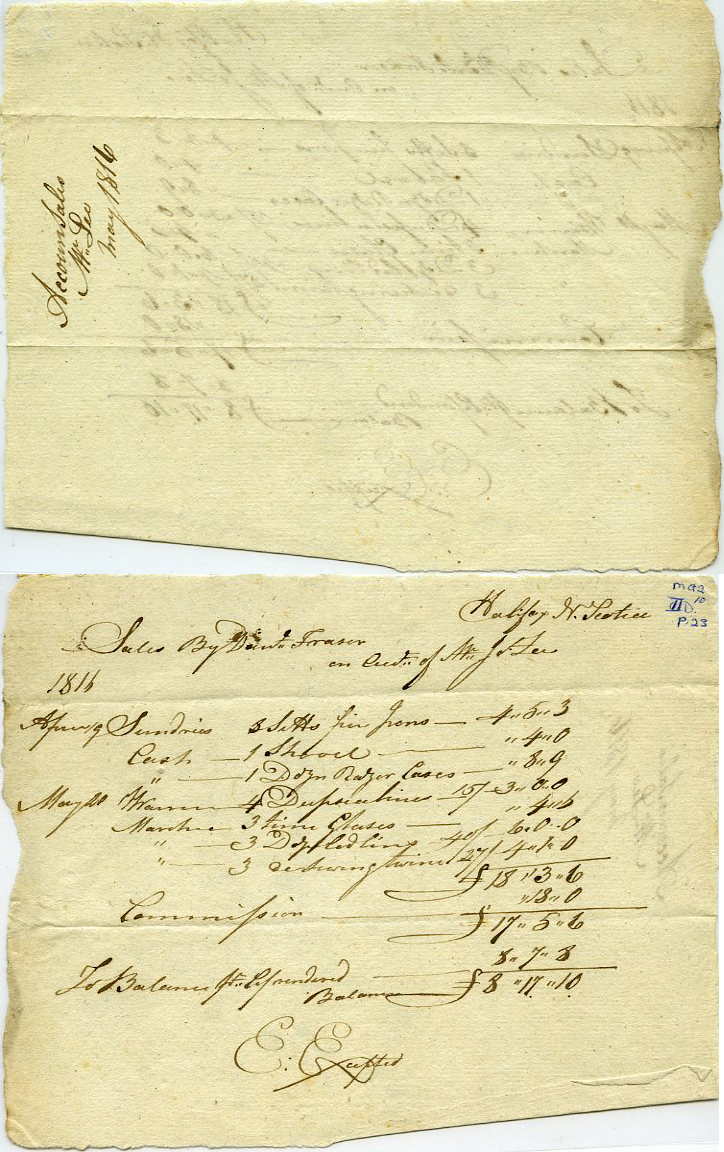 Account Sales
Mr Lee
May 1816
MG2
10
II D.
P. 23
Halifax N. Scotia
Sales By Danl. Fraser
on Acct. of Mr. Js. Lee
1816
Sundries 3 Setts fier Irons — 4 " 5 " 3
Cash — 1 Shovel — " 4 " 0
" — 1 Dozn Razor Cases — " 8 " 9
May 20 Warren — 4 Deepsealines — 15/ — 3 " 0 " 0
3 time Glases — " 4 " 6
" — 3 Dozledling 40/ 6 " 0 " 0
" — 3 deSwingtwine 27/ 4 " 1 " 0
£ 18 " 3 " 6
" 18 " 0
Commission — £ 17 " 5 " 6
8 " 7 " 8
To Balance pr. rendered
Balance — £ 8 " 17 " 10
E. Excepted